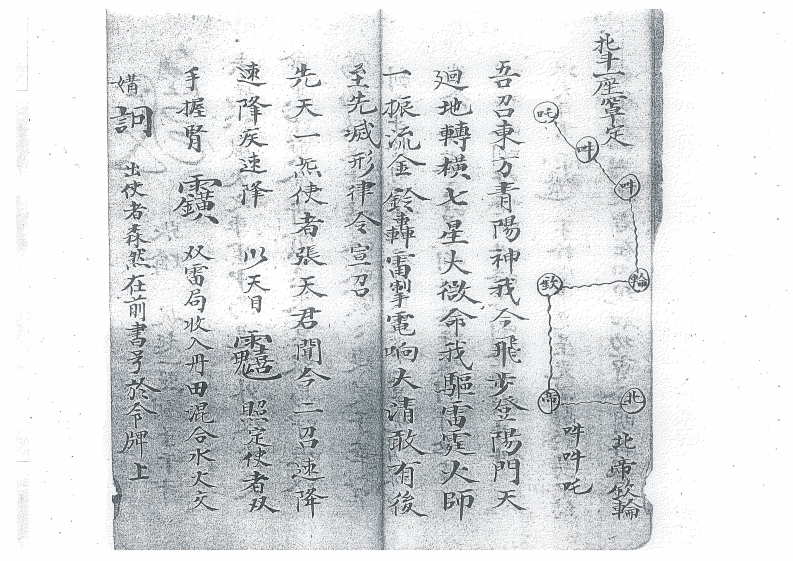 北斗一座罡定
吽
吽
吒
輪
欽
啼
北
北啼欽輪
吽吽吒
吾召東方青陽神我今飛步登陽門天
迴地轉橫七星大微命我驅雷霆火師
一振流金鈴轟雷掣電响大清敢有後
至先滅形律令宣召
先天一炁使者張天君聞今二召速降
速降疾速降 以天目 照定使者双
手握腎 双雷局收入丹田混合水火文
媾 訶 出使者森然在前書号於令牌上